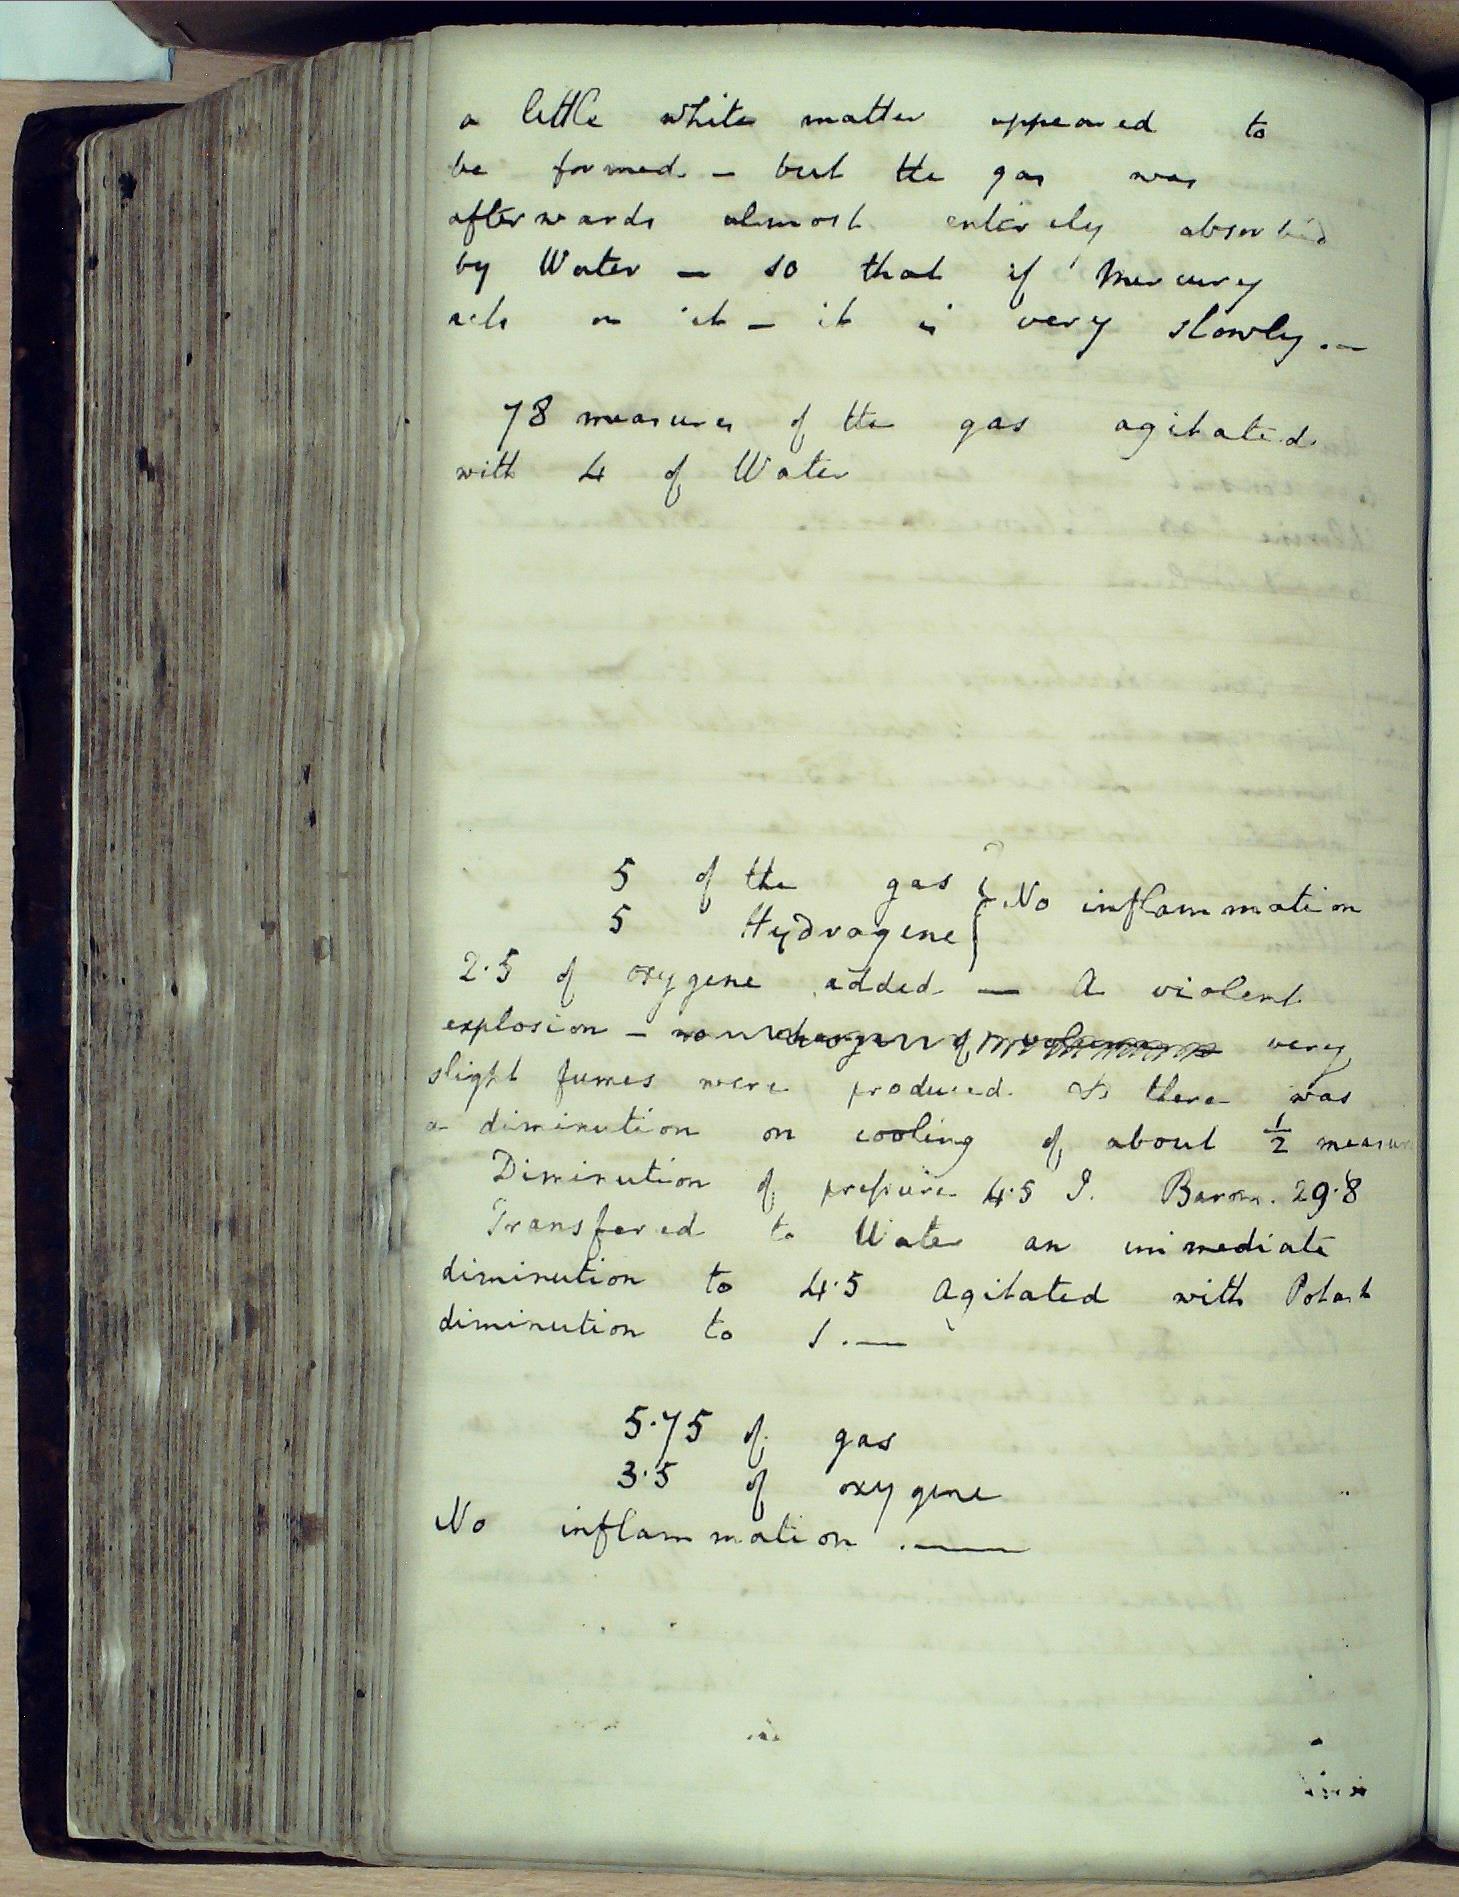 a little white matter appeared to
be formed. – but the gas was
afterwards almost entirely absorbed
by Water – so that if Mercury
acts on it – it is very slowly. –
78 measures of the gas agitated
with 4 of Water
5 of the gas } No inflammation
5 Hydrogene
2·5 of oxygene added – A violent
explosion – no change of volume very
slight fumes were produced. & there was
a diminution on cooling of about 1/2 measure
Diminution of pressure 4·5 I. Barom. 29·8
Transfered to Water an immediate
diminution to 4·5 Agitated with Potash
diminution to 1. —
5·75 of gas
3·5 of oxygene
No inflammation . —